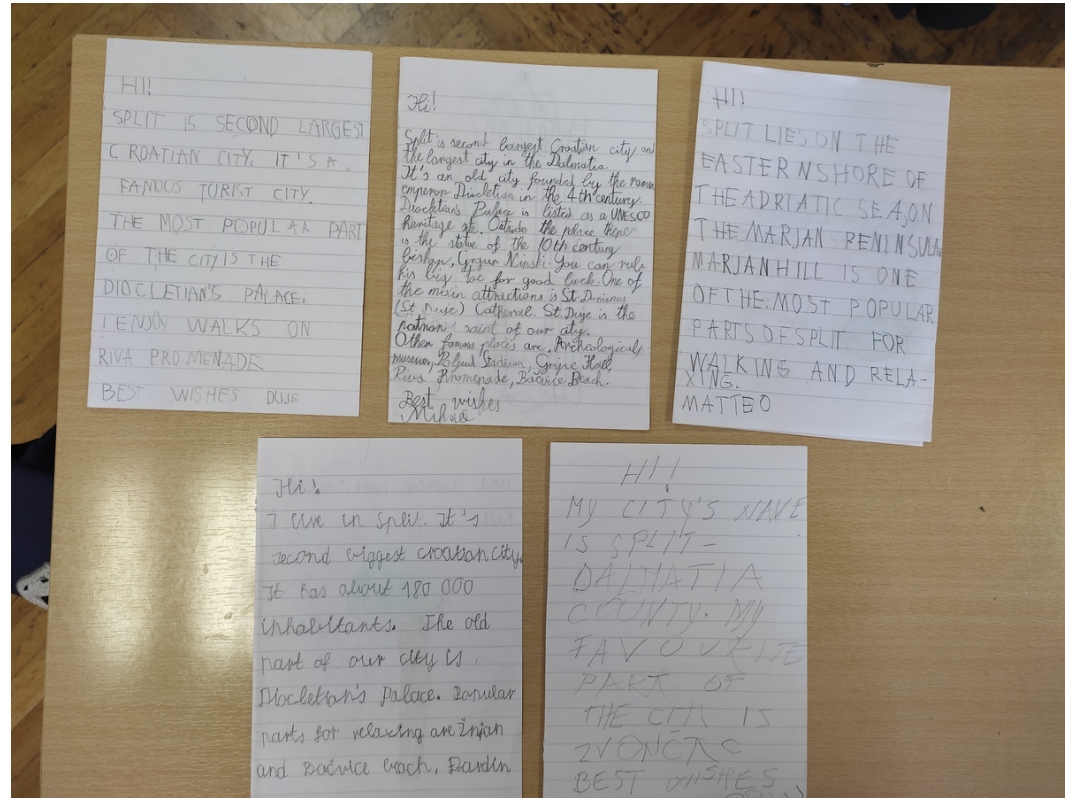 HI!
SPLIT IS SECOND LARGEST
CROATIAN CITY. IT'S A
FAMOUS TURIST CITY.
THE MOST POPULAR PART
OF THE CITY IS THE
DIOCLETIAN'S PALACE.
I ENJOY WALKS ON
RIVA PROMENADE
BEST WISHES DUJE
Hi!
Split is second largest Croatian city and
the largest city in the Dalmatia.
It's an old city founded by the roman
emperor Diocletian in the 4th century.
Diocletian's Palace is listed as a UNESCO
heritage site. Outside the palace there
is the statue of the 10th century
bishop, Grgur Ninski. You can rub
his big toe for good luck. One of
the main attractions is St. Domnius
(St Duje) Cathedral. St. Duje is the
patron saint of our city.
Other famous places are Archeological
museum, Poljud Stadium, Gripe Hall,
Riva Promenade, Bačvice Beach.
Best wishes
HI!
SPLIT LIES ON THE
EASTERN SHORE OF
THE ADRIATIC SEA, ON
THE MARJAN PENINSULA
MARJAN HILL IS ONE
OF THE MOST POPULAR
PARTS OF SPLIT FOR
WALKING AND RELA-
XING.
MATTEO
Hi!
I live in Split. It's
second biggest croatian city.
It has about 180 000
inhabitants. The old
part of our city is
Diocletian's Palace. Popular
parts for relaxing are Žnjan
and Bačvice beach,
HI!
MY CITY'S NAME
IS SPLIT -
DALMATIA
COUNTY. MY
FAVOURITE
PART OF
THE CITY IS
ZVONČAC
BEST WISHES